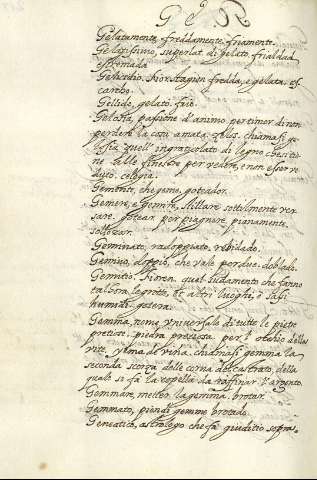 G E
Gelatamente, freddamente, friamente.
Gelatissimo, superlat. di gelato, frialdad
estremada
Gelicidio, stagion fredda, e gelata. es
carcho.
Gelido, gelato. frio.
Gelosia, passione d'animo per timor di non
perder la cosa amata. zelos. chiamasi ge
losia quell' ingraticolato di legno che si tie
ne alle finestre per vedere, e non esser ve
duto. celogia.
Gemente, che geme, goteador.
Gemere, e gemire, stillare sottilmente ver
sare. gotear. per piagnere, pianamente,
sollozar.
Geminato, radoppiato, redoblado.
Gemino, doppio, che vale per due. doblado.
Gemitio, quel sudamento che fanno
tal' ora le grotte, et altri luoghi, o sassi
humidi. gotera.
Gemma, nome universale di tutte le pietre
pretiose. piedra preciosa. per l' occhio della
vite. yema de vina. chiamasi gemma la
seconda scorza delle corna del castrato, della
quale si fa la copella da raffinar l' argento.
Gemmare, metter la gemma, brotar.
Gemmato, pien di gemme, brotado.
Genetiaco, astrologo che fà giuditio sopra